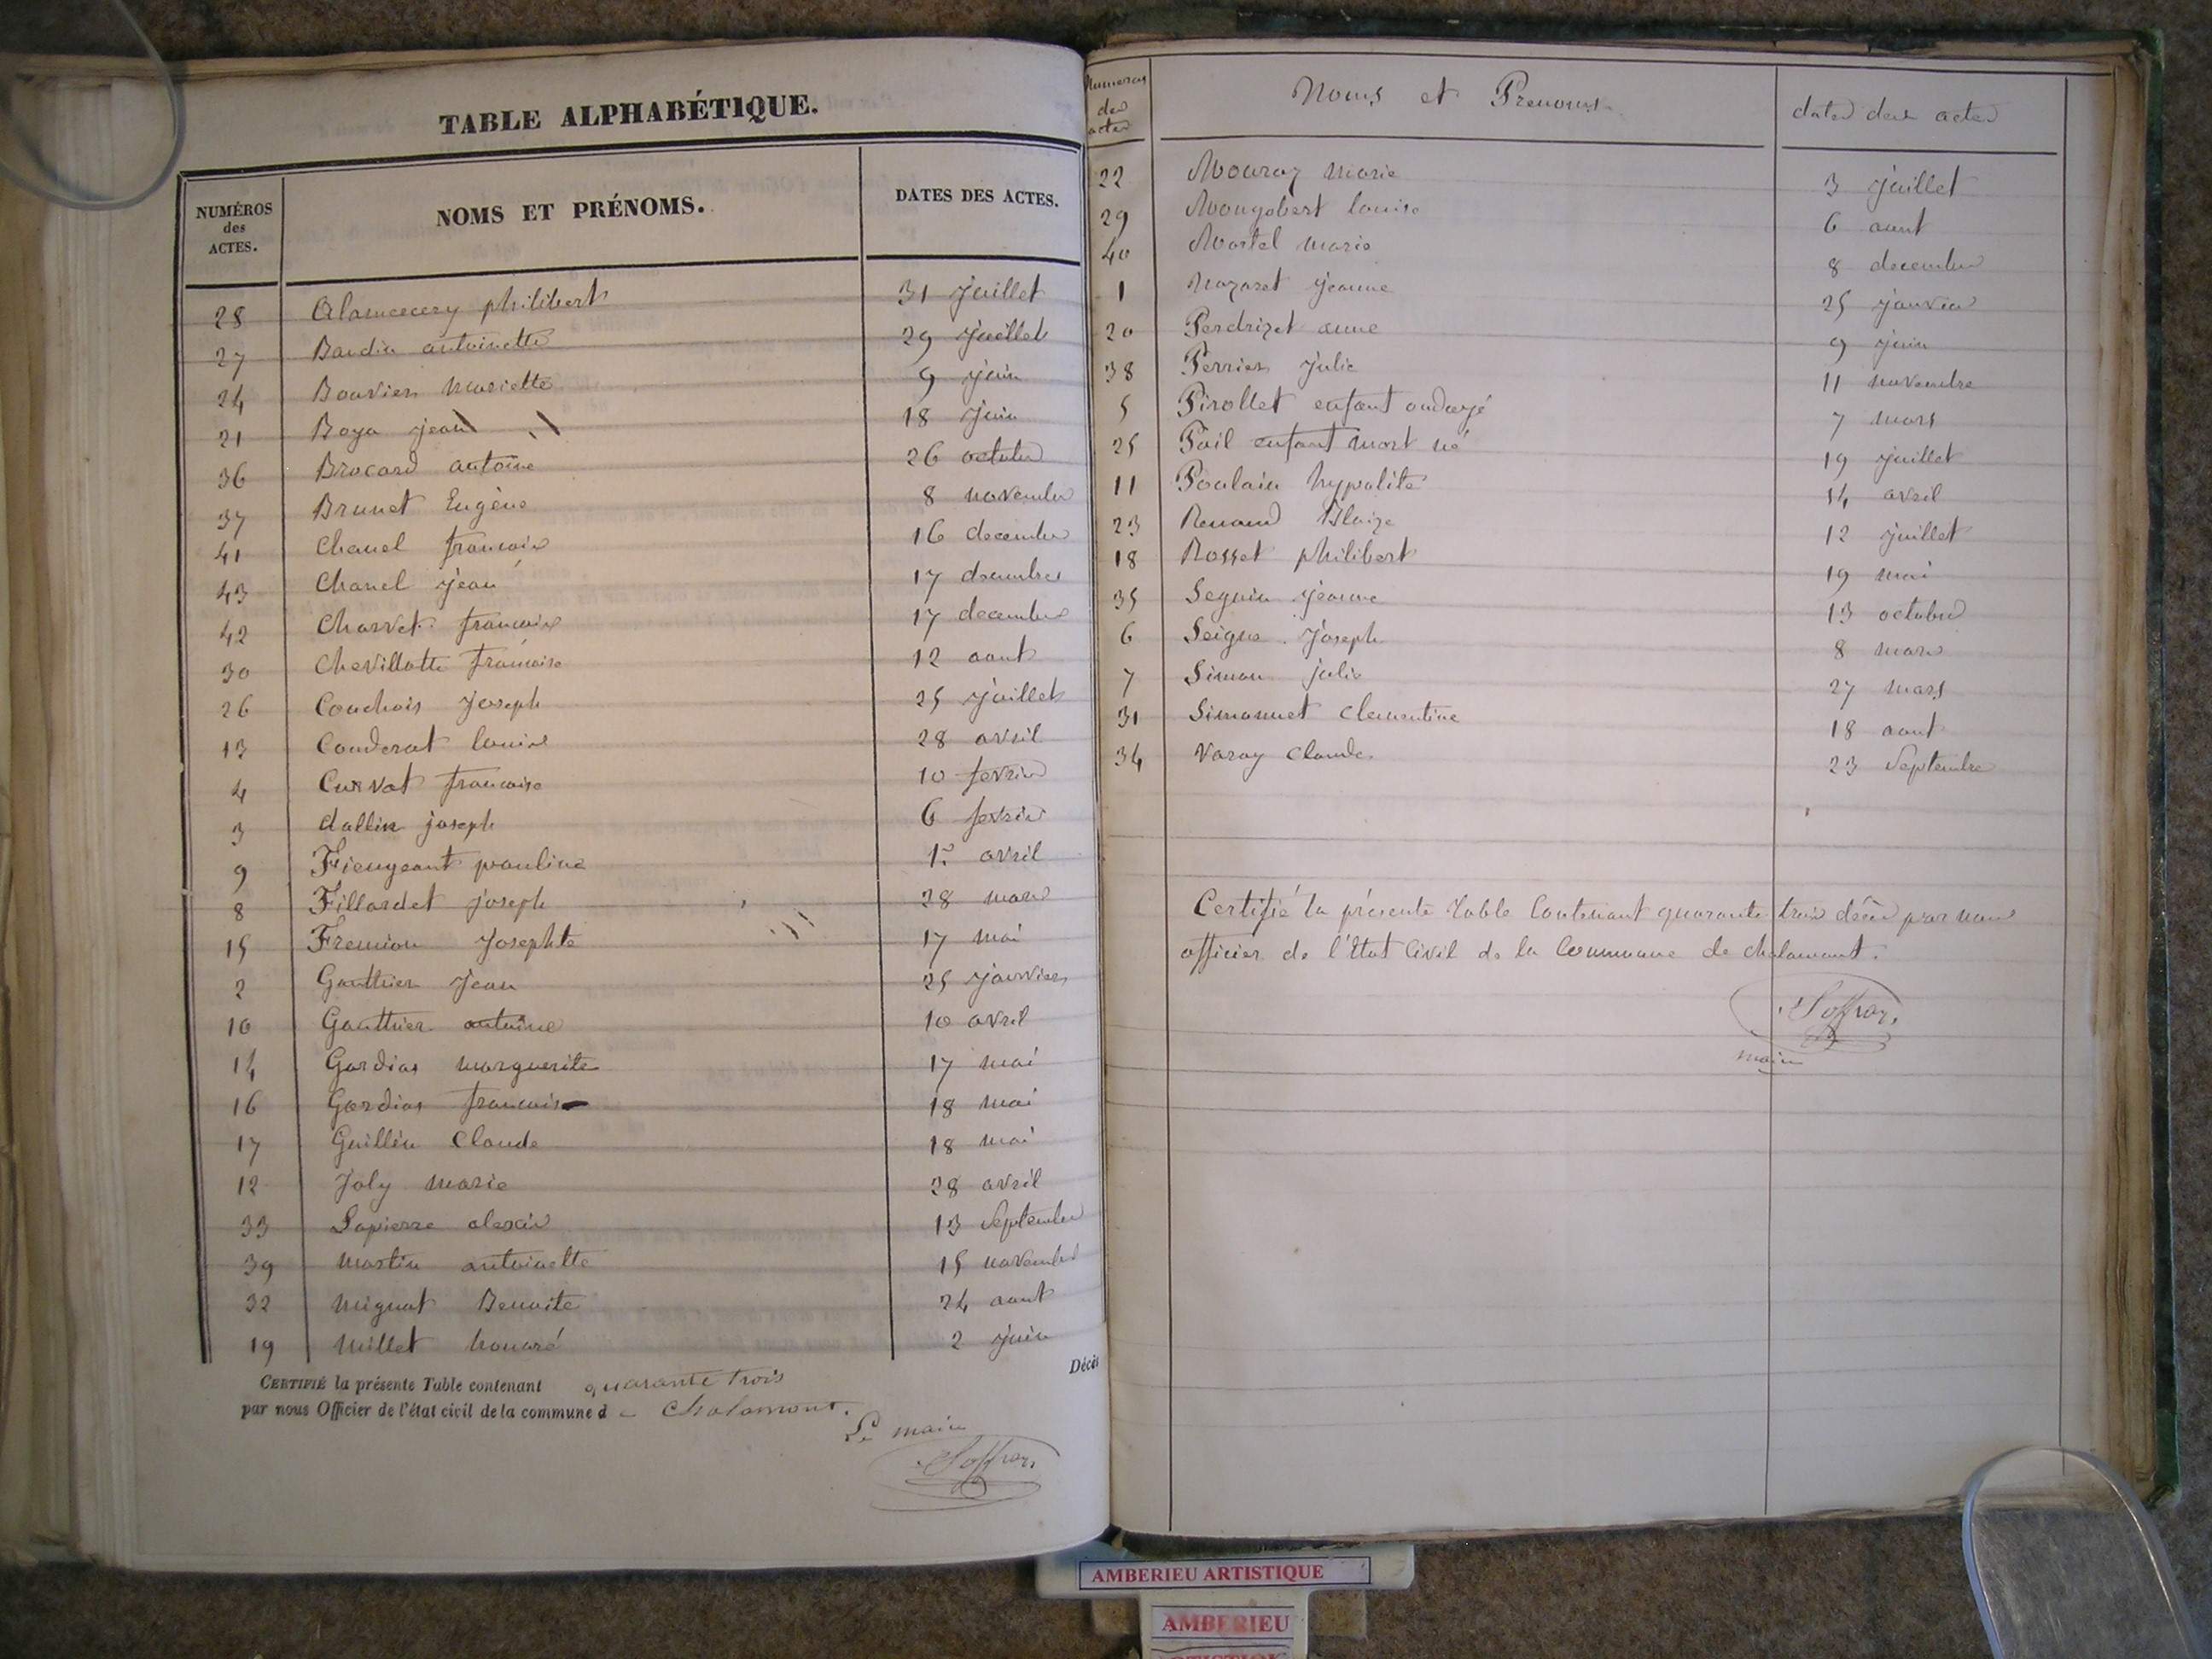 TABLE ALPHABÉTIQUE.
NUMÉROS des ACTES. NOMS ET PRÉNOMS. DATES DES ACTES.
28 philibert 31 juillet
27 Baudin antoinette 29 juillet
24 Bouvier mariette 9 juin
21 Boya jean 18 juin
36 Brocard antoine 26 octobre
37 Brunet Eugène 8 novembre
41 Chanel francois 16 decembre
43 Chanel jean 17 decembre
42 Charvet francois 17 decembre
30 Chevillotte francoise 12 aout
26 Couchois Joseph 25 juillet
13 Couderat louise 28 avril
4 Curvat francoise 10 fevrier
3 dallin joseph 6 fevrier
9 Fieugeant pauline 1er avril
8 Fillardet joseph 28 mars
15 Fremion Josephte 17 mai
2 Gauthier Jean 25 janvier
10 Gauthier antoine 10 avril
14 Gordias marguerite 17 mai
16 Gordias francois 18 mai
17 Guillin Claude 18 mai
12 Joly marie 28 avril
33 Lapierre alexis 13 Septembre
39 Martin antoinette 15 novembre
32 Mignat Benoite 24 aout
19 Millet honoré 2 juin
Décès
CERTIFIÉ la présente Table contenant quarante trois
par nous Officier de l'état civil de la commune de Chalamont.
Le maire
Numeros des actes Noms et Prenoms dates des actes
22 Mouray Marie 3 juillet
29 Mongobert louise 6 aout
40 Mortel marie 8 decembre
1 Nazaret jeanne 25 janvier
20 Perdrizet anne 9 juin
38 Perrier Julie 11 novembre
5 Pirollet enfant ondoyé 7 mars
25 Poil enfant mort né 19 juillet
11 Poulain hypolite 14 avril
23 Renaud Blaize 12 juillet
18 Rosset philibert 19 mai
35 Seguin jeanne 13 octobre
6 Seigne Joseph 8 mars
7 Simon julie 27 mars
31 Simonnet clementine 18 aout
34 Varay claude 23 Septembre
Certifié la présente table Contenant quarante trois décès par nous
officier de l'Etat Civil de la Commune de chalamont.
maire
AMBERIEU ARTISTIQUE
AMBERIEU